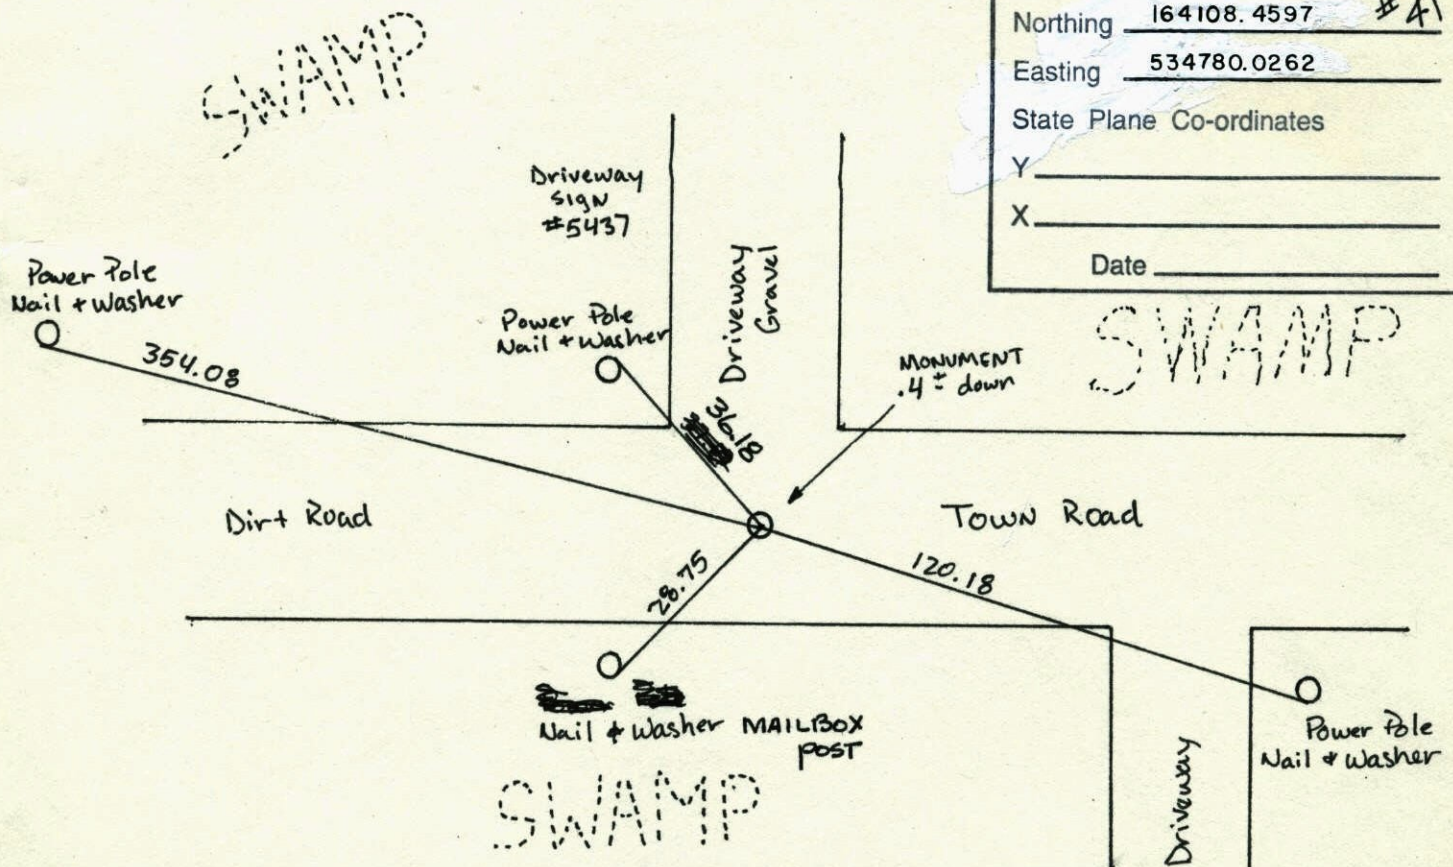 SWAMP
Northing 164108.4597 #41
Easting 534780.0262
State Plane Co-ordinates
Y
X
Date
Driveway
Sign
#5437
Power Pole
Nail + Washer
354.08
Power Pole
Nail + Washer
Driveway
Gravel
36.18
MONUMENT
.4 ± down
SWAMP
Dirt Road
Town Road
28.75
120.18
Nail & Washer MAILBOX
POST
SWAMP
Driveway
Power Pole
Nail & Washer